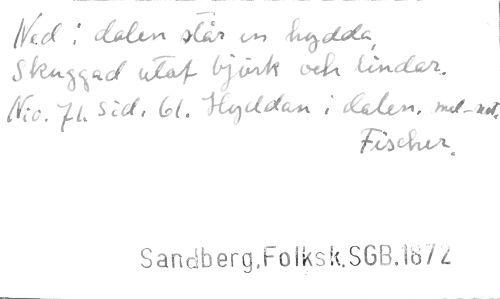 Ned i dalen står en hydda,
Skuggad utaf björk och lindar.
No. 71. Sid. 61. Hyddan i dalen. mel-not.
Fischer.
Sandberg,Folksk.SGB.1872